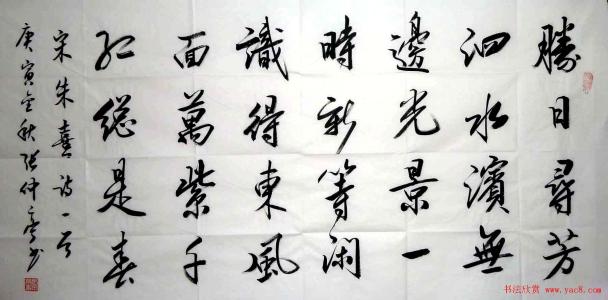 勝日尋芳
泗水濱無
邊光景一
時新等闲
識得東風
面萬紫千
红總是春
宋朱熹诗一首
庚寅金秋张仲亭书
书法欣赏 www.yac8.com